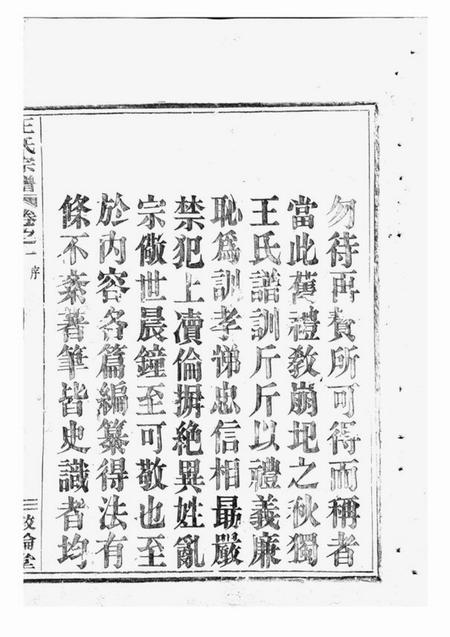 勿待再贅所可得而稱者
當此舊禮教崩圯之秋獨
王氏譜訓斤斤以禮義廉
恥為訓孝悌忠信相勗嚴
禁犯上凟倫摒絕異姓亂
宗儆世晨鐘至可敬也至
於內容各篇編纂得法有
條不紊著筆皆史識者均
王氏宗譜 卷之一 序 三